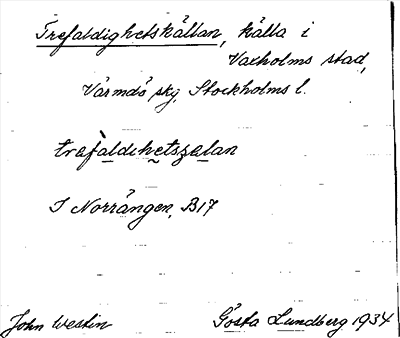 Trefaldighetskällan, källa i
Vaxholms stad,
Värmdö sky, Stockholms l.
trefàldihetszalan
I Norrängen, B17
John Westin Gösta Lundberg 1934